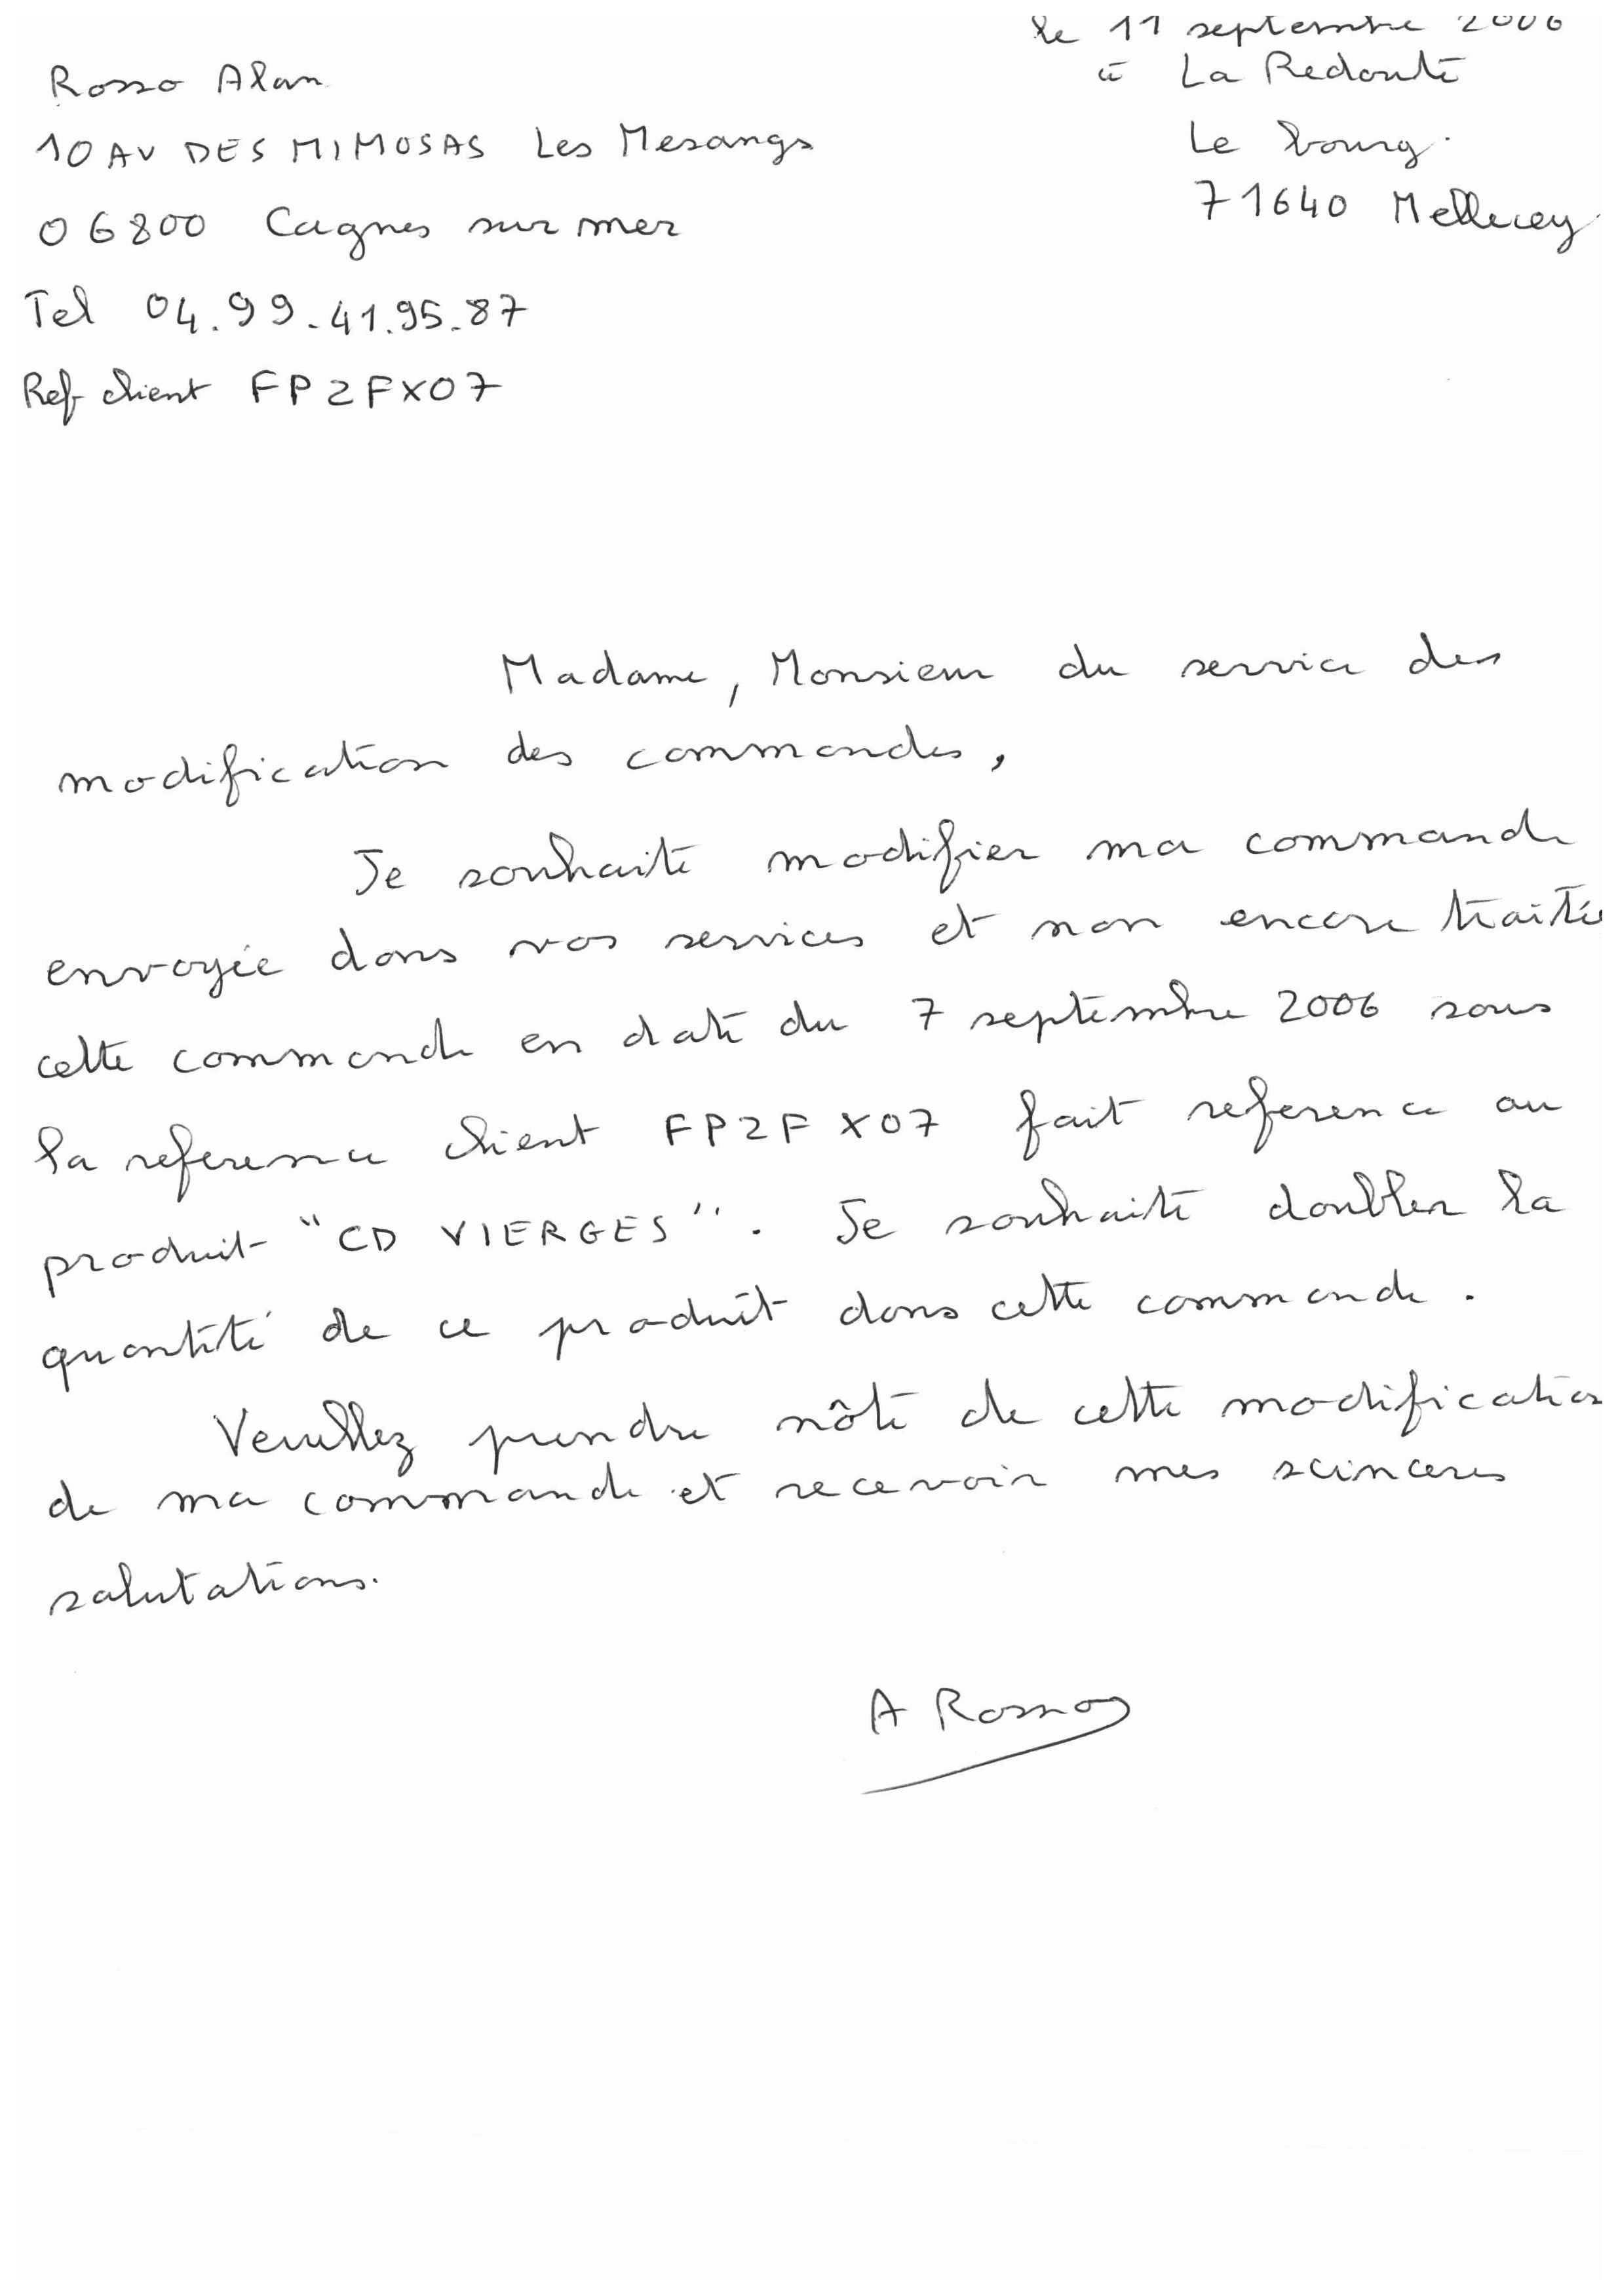 le 11 septembre 2006
Rosso Alan
à La Redoute
10 AV DES MIMOSAS Les Mesangs
Le bourg.
06800 Cagnes sur mer
71640 Mellecey
Tel 04.99.41.95.87
Ref client FP2FX07
Madame, Monsieur du service des
modification des commandes,
Je souhaite modifier ma commande
envoyée dans vos services et non encore traitée
cette commande en date du 7 septembre 2006 sous
la reference client FP2FX07 fait reference au
produit "CD VIERGES". Je souhaite doubler la
quantité de ce produit dans cette commande.
Veuillez prendre nôte de cette modification
de ma commande et recevoir mes scinceres
salutations.
A Rosso